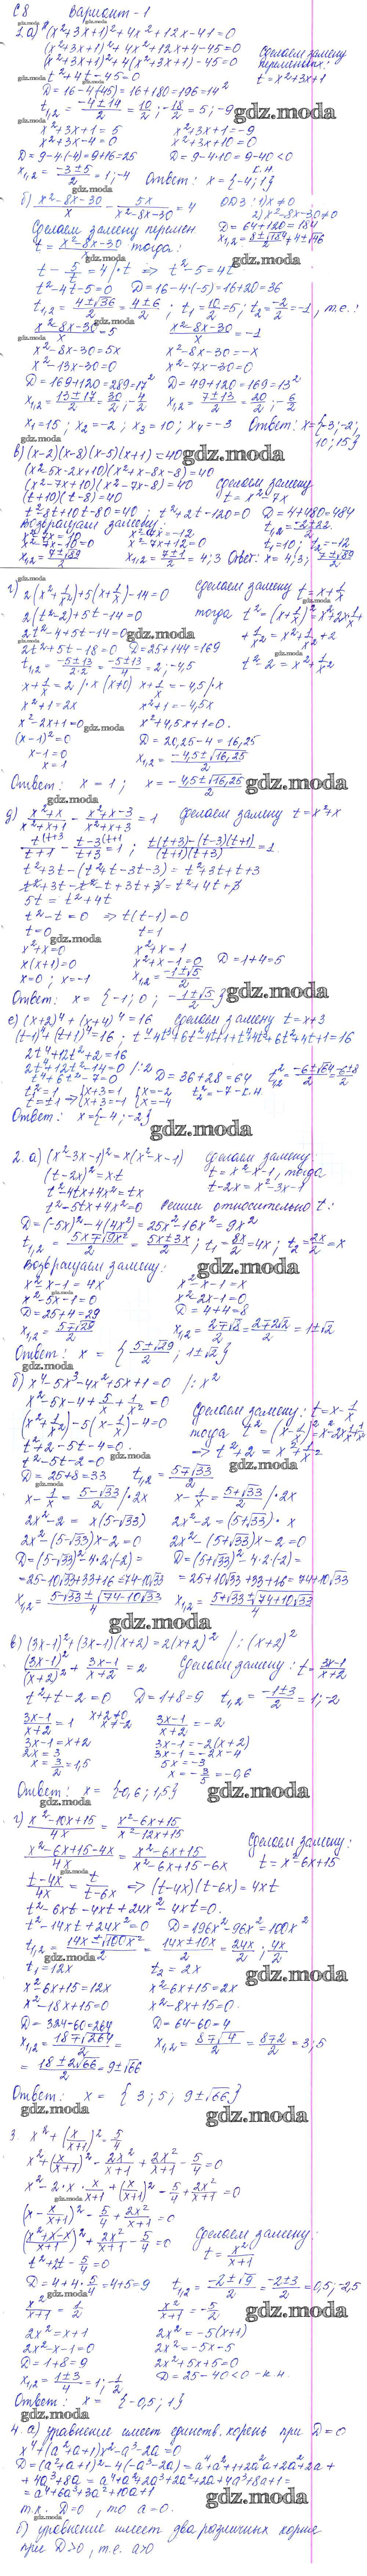 С 8 Вариант - 1
1.а) (x²+3x+1)²+4x²+12x-41=0
(x²+3x+1)²+4x²+12x+4-45=0
(x²+3x+1)²+4(x²+3x+1)-45=0
Сделаем замену переменных:
t=x²+3x+1
t²+4t-45=0
D=16-4(-45)=16+180=196=14²
t₁,₂ = (-4±14)/2 = 10/2; -18/2 = 5; -9
x²+3x+1=5 x²+3x+1=-9
x²+3x-4=0 x²+3x+10=0
D=9-4(-4)=9+16=25 D=9-4·10=9-40<0
x₁,₂ = (-3±5)/2 = 1; -4 к.н.
Ответ: x={-4; 1}
б) (x²-8x-30)/x - 5x/(x²-8x-30) = 4 ОДЗ: 1) x≠0
2) x²-8x-30≠0
Сделаем замену перемен D=64+120=184
t=(x²-8x-30)/x тогда:
t - 5/t = 4 /·t ⇒ t²-5=4t
t²-4t-5=0 D=16-4(-5)=16+20=36
t₁,₂ = (4±√36)/2 = (4±6)/2; t₁=10/2=5; t₂=-2/2=-1, т.е.:
(x²-8x-30)/x=5 (x²-8x-30)/x=-1
x²-8x-30=5x x²-8x-30=-x
x²-13x-30=0 x²-7x-30=0
D=169+120=289=17² D=49+120=169=13²
x₁,₂ = (13±17)/2 = 30/2; -4/2 x₁,₂ = (7±13)/2 = 20/2; -6/2
x₁=15; x₂=-2; x₃=10; x₄=-3 Ответ: x={-3; -2; 10; 15}
в) (x-2)(x-8)(x-5)(x+1)=40
(x²-5x-2x+10)(x²+x-8x-8)=40
(x²-7x+10)(x²-7x-8)=40 сделаем замену
(t+10)(t-8)=40 t=x²-7x
t²-8t+10t-80=40; t²+2t-120=0 D=4+480=484
Возвращаем замену: t₁,₂ = (-2±22)/2
x²-7x=10 x²-7x=-12 t₁=10; t₂=-12
x²-7x-10=0 x²-7x+12=0
x₁,₂ = (7±√89)/2 x₁,₂ = (7±1)/2 = 4; 3 Ответ: x=4; 3; (7±√89)/2
г) 2(x²+1/x²)+5(x+1/x)-14=0 сделаем замену t=x+1/x
2(t²-2)+5t-14=0 тогда t²=(x+1/x)²=x²+2x·1/x+
2t²-4+5t-14=0 +1/x²=x²+1/x²+2
2t²+5t-18=0 D=25+144=169
t₁,₂ = (-5±13)/(2·2) = (-5±13)/4 = 2; -4,5 t²-2=x²+1/x²
x+1/x=2 /·x (x≠0) x+1/x=-4,5 /·x
x²+1=2x x²+1=-4,5x
x²-2x+1=0 x²+4,5x+1=0.
(x-1)²=0 D=20,25-4=16,25
x-1=0 x₁,₂ = (-4,5±√16,25)/2
x=1
Ответ: x=1; x=(-4,5±√16,25)/2
д) (x²+x)/(x²+x+1) - (x²+x-3)/(x²+x+3) = 1 сделаем замену t=x²+x
t/(t+1) - (t-3)/(t+3) = 1; (t(t+3)-(t-3)(t+1))/((t+1)(t+3)) = 1
t²+3t-(t²+t-3t-3)=t²+3t+t+3
t²+3t-t²-t+3t+3=t²+4t+3
5t=t²+4t
t²-t=0 ⇒ t(t-1)=0
t=0 t=1
x²+x=0 x²+x=1
x(x+1)=0 x²+x-1=0 D=1+4=5
x=0; x=-1 x₁,₂ = (-1±√5)/2
Ответ: x={-1; 0; (-1±√5)/2}
е) (x+2)⁴+(x+4)⁴=16 сделаем замену t=x+3
(t-1)⁴+(t+1)⁴=16; t⁴-4t³+6t²-4t+1+t⁴+4t³+6t²+4t+1=16
2t⁴+12t²+2=16
2t⁴+12t²-14=0 /:2
t⁴+6t²-7=0 D=36+28=64 t²₁,₂ = (-6±√64)/2 = (-6±8)/2
t²=1 {x+3=1 {x=-2 t²=-7 - к.н.
t=±1 {x+3=-1 {x=-4
Ответ: x={-4; -2}
2. а) (x²-3x-1)²=x(x²-x-1) сделаем замену:
(t-2x)²=x·t t=x²-x-1, тогда
t²-4tx+4x²=tx t-2x=x²-3x-1
t²-5tx+4x²=0 Решим относительно t:
D=(-5x)²-4(4x²)=25x²-16x²=9x²
t₁,₂ = (5x∓√9x²)/2 = (5x±3x)/2; t₁=8x/2=4x; t₂=2x/2=x
Возвращаем замену:
x²-x-1=4x x²-x-1=x
x²-5x-1=0 x²-2x-1=0
D=25+4=29 D=4+4=8
x₁,₂ = (5∓√29)/2 x₁,₂ = (2∓√8)/2 = (2∓2√2)/2 = 1±√2
Ответ: x={(5±√29)/2; 1±√2}
б) x⁴-5x³-4x²+5x+1=0 /:x²
x²-5x-4+5/x+1/x²=0
(x²+1/x²)-5(x-1/x)-4=0 Сделаем замену: t=x-1/x
t²+2-5t-4=0. тогда t²=(x-1/x)²=x²-2x·1/x+1/x²
t²-5t-2=0 ⇒ t²+2=x²+1/x²
D=25+8=33 t₁,₂ = (5∓√33)/2
x-1/x=(5-√33)/2 /·2x x-1/x=(5+√33)/2 /·2x
2x²-2=x(5-√33) 2x²-2=(5+√33)·x
2x²-(5-√33)x-2=0 2x²-(5+√33)x-2=0
D=(5-√33)²-4·2·(-2)= D=(5+√33)²-4·2·(-2)=
=25-10√33+33+16=74-10√33 =25+10√33+33+16=74+10√33
x₁,₂ = (5-√33±√(74-10√33))/4 x₁,₂ = (5+√33±√(74+10√33))/4
в) (3x-1)²+(3x-1)(x+2)=2(x+2)² /:(x+2)²
(3x-1)²/(x+2)² + (3x-1)/(x+2) = 2 Сделаем замену: t=(3x-1)/(x+2)
t²+t-2=0 D=1+8=9 t₁,₂ = (-1±3)/2 = 1; -2
(3x-1)/(x+2)=1 x+2≠0 x≠-2 (3x-1)/(x+2)=-2
3x-1=x+2 3x-1=-2(x+2)
2x=3 3x-1=-2x-4
x=3/2=1,5 5x=-3
x=-3/5=-0,6
Ответ: x={-0,6; 1,5}
г) (x²-10x+15)/4x = (x²-6x+15)/(x²-12x+15)
(x²-6x+15-4x)/4x = (x²-6x+15)/(x²-6x+15-6x) Сделаем замену:
t=x²-6x+15
(t-4x)/4x = t/(t-6x) ⇒ (t-4x)(t-6x)=4xt
t²-6xt-4xt+24x²-4xt=0.
t²-14xt+24x²=0 D=196x²-96x²=100x²
t₁,₂ = (14x±√100x²)/2 = (14x±10x)/2 = 24x/2; 4x/2
t₁=12x t₂=2x
x²-6x+15=12x x²-6x+15=2x
x²-18x+15=0 x²-8x+15=0.
D=324-60=264 D=64-60=4
x₁,₂ = (18∓√264)/2 = x₁,₂ = (8∓√4)/2 = (8∓2)/2 = 3; 5
= (18±2√66)/2 = 9±√66
Ответ: x={3; 5; 9±√66}
3. x²+(x/(x+1))²=5/4
x²+(x/(x+1))²-2x²/(x+1)+2x²/(x+1)-5/4=0
x²-2·x·x/(x+1)+(x/(x+1))²-5/4+2x²/(x+1)=0
(x-x/(x+1))²-5/4+2x²/(x+1)=0
((x²+x-x)/(x+1))²+2x²/(x+1)-5/4=0 Сделаем замену:
t²+2t-5/4=0 t=x²/(x+1)
D=4+4·5/4=4+5=9 t₁,₂ = (-2±√9)/2 = (-2±3)/2 = 0,5; -2,5
x²/(x+1)=1/2 x²/(x+1)=-5/2
2x²=x+1 2x²=-5(x+1)
2x²-x-1=0 2x²=-5x-5
D=1+8=9 2x²+5x+5=0
x₁,₂ = (1±3)/4 = 1; -1/2 D=25-40<0 - к.н.
Ответ: x={-0,5; 1}
4. а) уравнение имеет единств. корень при D=0
x⁴+(a²+a+1)x²-a³-2a=0
D=(a²+a+1)²-4(-a³-2a)=a⁴+a²+1+2a³+2a²+2a+
+4a³+8a=a⁴+a²+2a³+2a²+2a+4a³+8a+1=
=a⁴+6a³+3a²+10a+1
т.к. D=0, то a=0.
б) уравнение имеет два различных корня
при D>0, т.е. a>0
gdz.moda